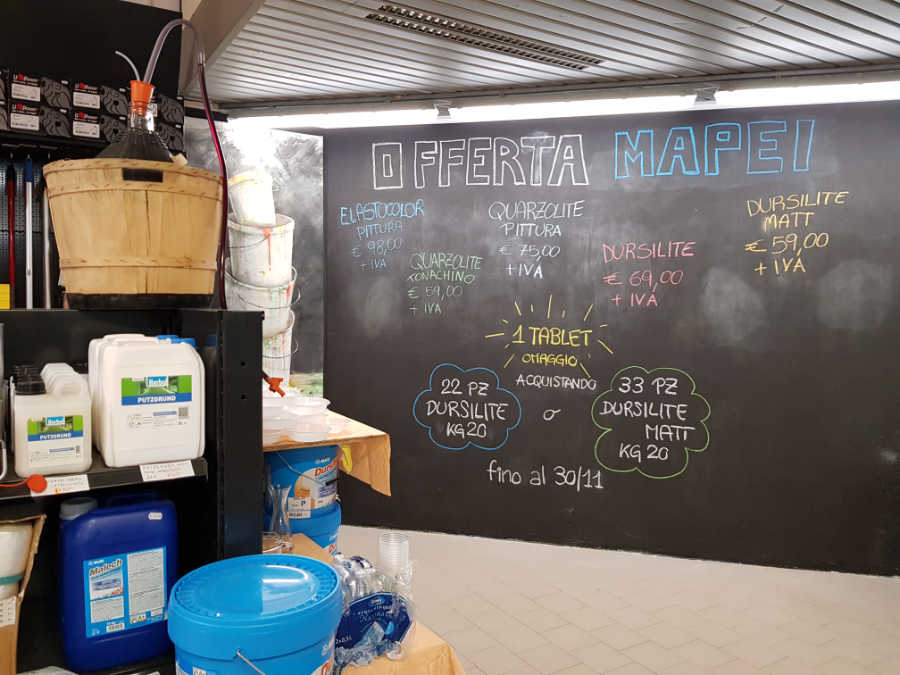 OFFERTA MAPEI
ELASTOCOLOR
PITTURA
€ 98,00
+ IVA
QUARZOLITE
TONACHINO
€ 59,00
+ IVA
QUARZOLITE
PITTURA
€ 75,00
+ IVA
DURSILITE
€ 69,00
+ IVA
DURSILITE
MATT
€ 59,00
+ IVA
1 TABLET
OMAGGIO
ACQUISTANDO
22 PZ
DURSILITE
KG 20
o
33 PZ
DURSILITE
MATT
KG 20
fino al 30/11
Herbol
PUTZGRUND
PUTZGRUND
Malech